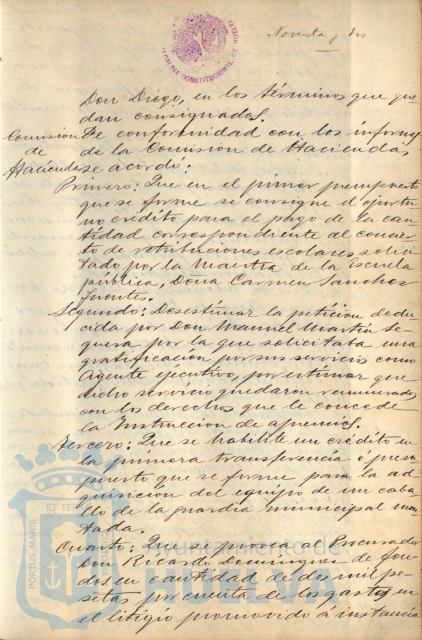 Noventa y dos
ALCALDIA CONSTITUCIONAL DE HUELVA
Don Diego, en los términos que que
dan consignados.
Comisión
de
Hacienda
De conformidad con los informes
de la Comisión de Hacienda,
se acordó:
Primero: Que en el primer presupuesto
que se forme se consigne el oportu
no crédito para el pago de la can
tidad correspondiente al concier
to de retribuciones escolares solici
tado por la Maestra de la Escuela
pública, Doña Carmen Sanchez
Fuentes.
Segundo: Desestimar la petición dedu
cida por Don Manuel Martin Se
quera por la que solicitaba una
gratificación por sus servicios como
Agente ejecutivo, por estimar que
dicho servicio quedaron remunerados
con los derechos que le concede
la Instrucción de apremios.
Tercero: Que se habilite un crédito en
la primera transferencia ó presu
puesto que se forme para la ad
quisición del equipo de un caba
llo de la guardia municipal mon
tada.
Cuarto: Que se provea al Procurador
Don Ricardo Dominguez de fon
dos en cantidad de dos mil pe
setas, por cuenta de los gastos en
el litigio promovido á instancia
PORTUS MARIS ET TER
Ayuntamiento de